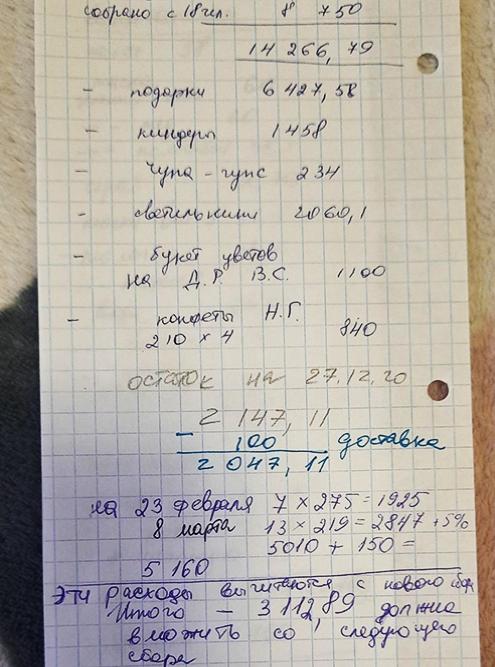 собрано с 18чел. 8 750
14 266, 79
- подарки 6 427, 58
- киндеры 1458
- Чупа-чупс 234
- светильники 2060,1
- букет цветов
на Д.Р. В.С. 1100
- конфеты Н.Г.
210 х 4 840
остаток на 27.12.20
2 147, 11
- 100 доставка
2 047, 11
на 23 февраля 7 х 275 = 1925
8 марта 13 х 219 = 2847 + 5%
5010 + 150 =
5 160
Эти расходы вычитаются с нового сбора
Итого - 3 112,89 должна
вложить со следующего
сбора